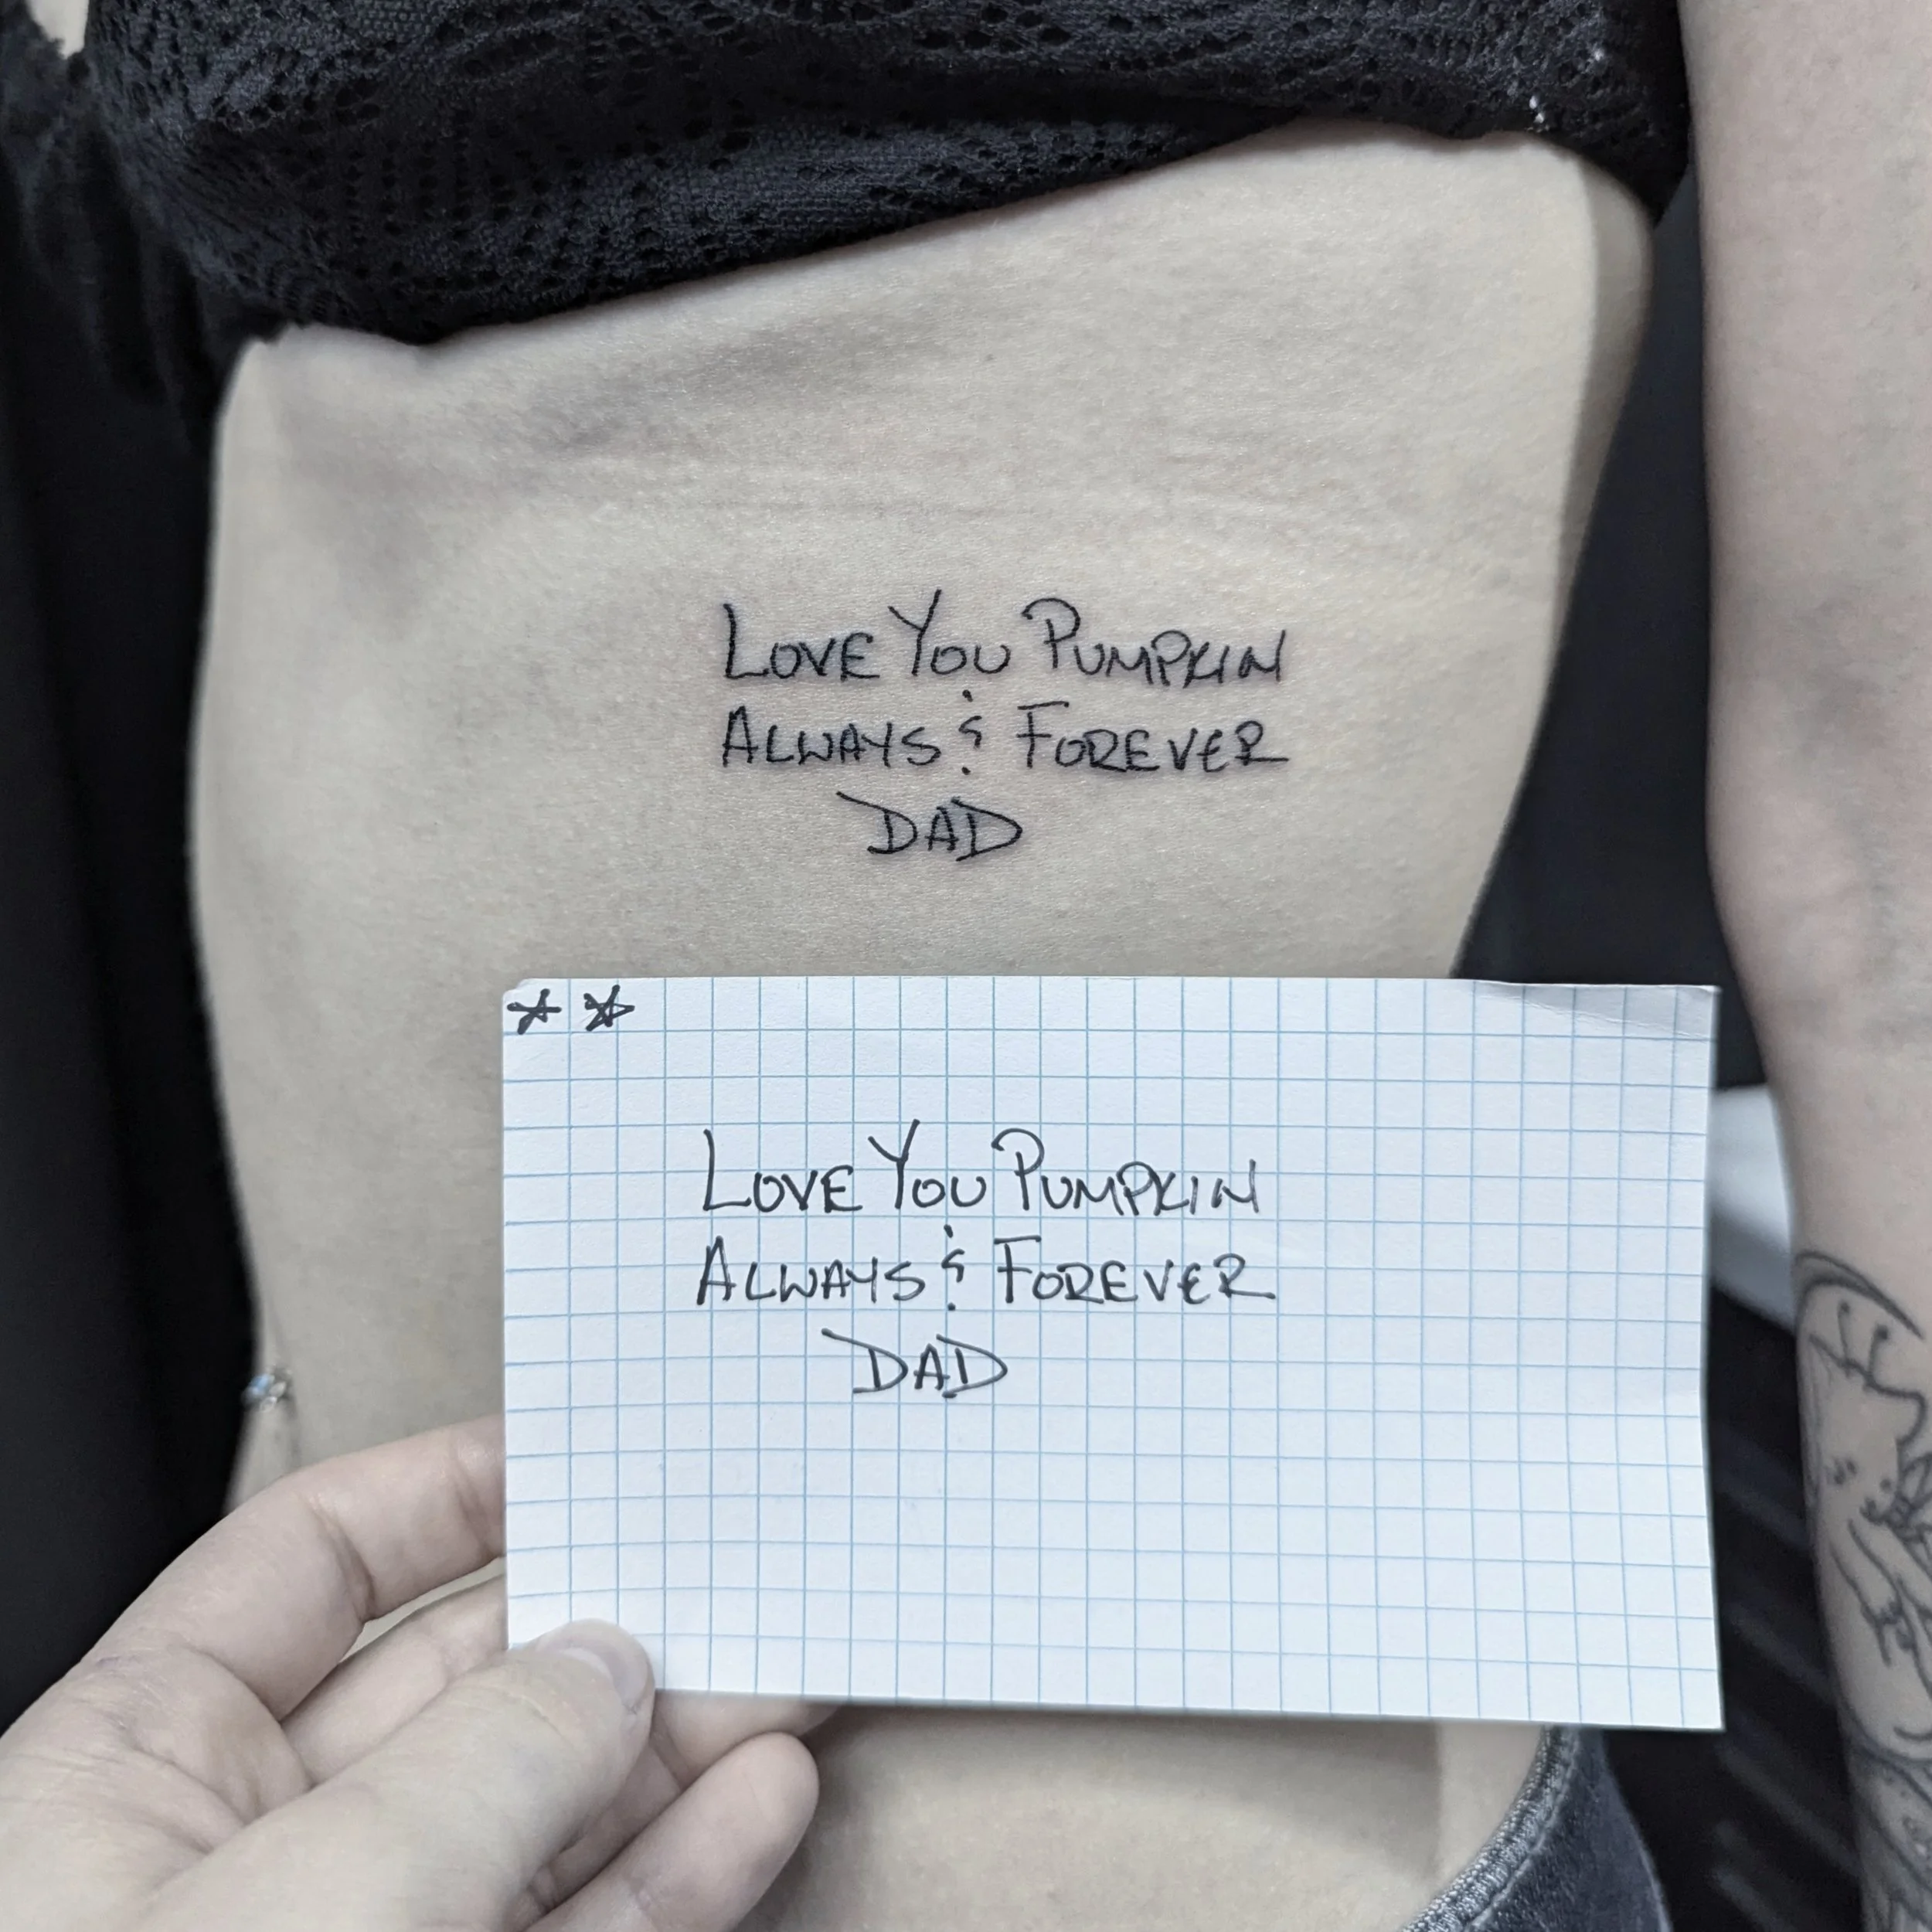 LOVE YOU PUMPKIN
ALWAYS & FOREVER
DAD
LOVE YOU PUMPKIN
ALWAYS & FOREVER
DAD